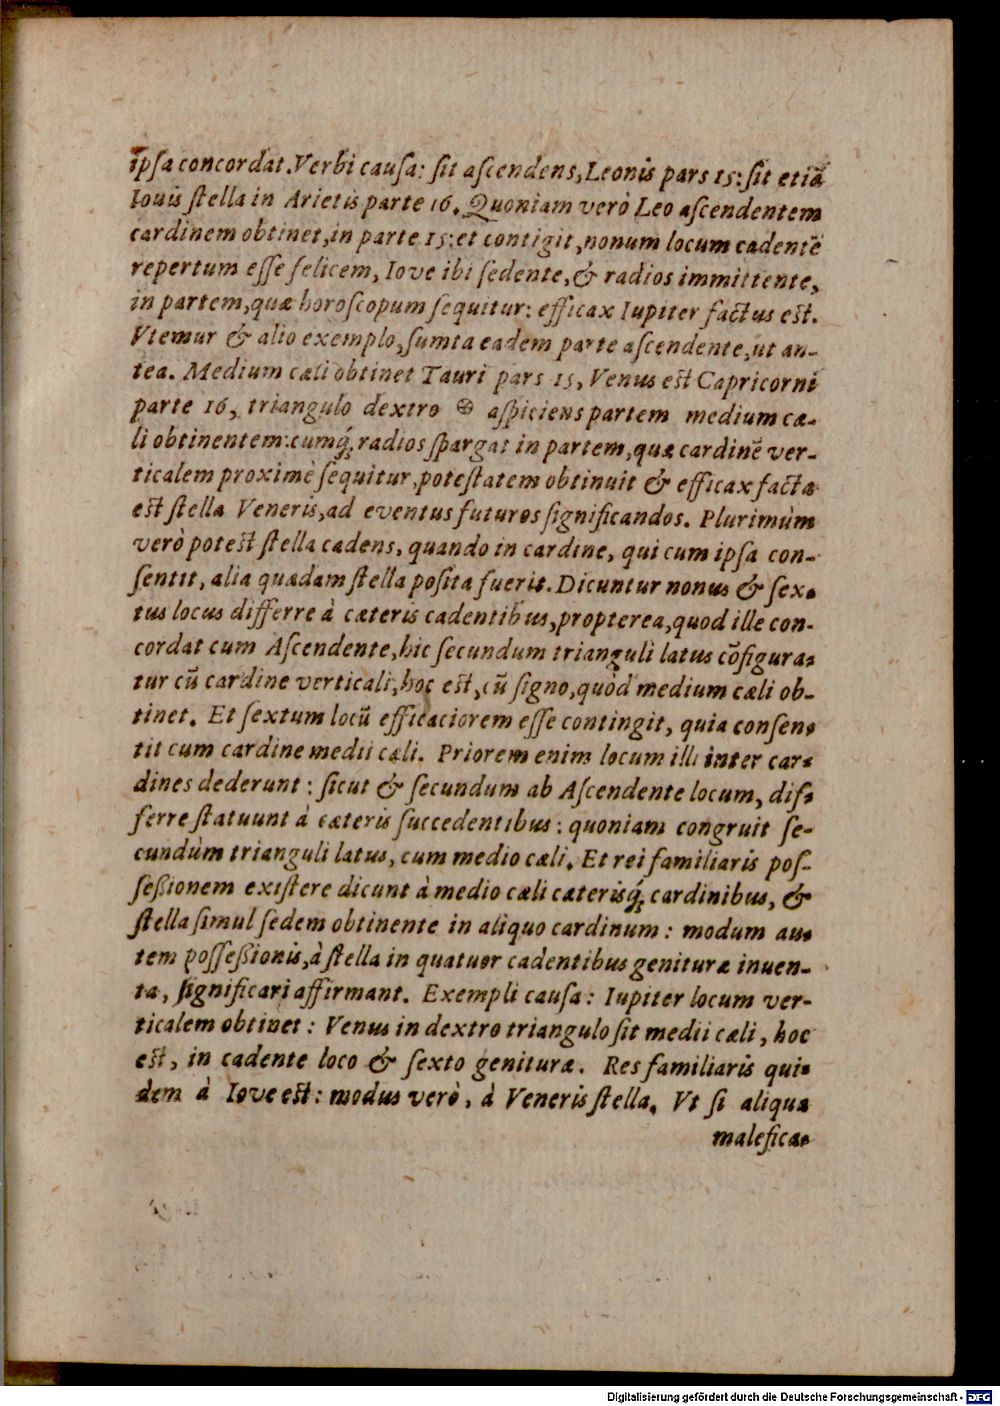 ipſa concordat. Verbi cauſa: ſit aſcendens, Leonis pars 15: ſit etiã
Iouis ſtella in Arietis parte 16. Quoniam verò Leo aſcendentem
cardinem obtinet, in parte 15: et contigit, nonum locum cadentẽ
repertum eſſe felicem, Iove ibi ſedente, & radios immittente,
in partem, quæ horoſcopum ſequitur: efficax Iupiter factus eſt.
Vtemur & alio exemplo, ſumta eadem parte aſcendente, ut an-
tea. Medium cæli obtinet Tauri pars 15, Venus eſt Capricorni
parte 16, triangulo dextro ⊕ aſpiciens partem medium cæ-
li obtinentem: cumq́; radios ſpargat in partem, quæ cardinẽ ver-
ticalem proximè ſequitur, poteſtatem obtinuit & efficax facta
eſt ſtella Veneris, ad eventus futuros ſignificandos. Plurimùm
verò poteſt ſtella cadens, quando in cardine, qui cum ipſa con-
ſentit, alia quædam ſtella poſita fuerit. Dicuntur nonus & ſex-
tus locus differre à cæteris cadentibus, propterea, quod ille con-
cordat cum Aſcendente, hic ſecundum trianguli latus cõfigura-
tur cũ cardine verticali, hoc eſt, cũ ſigno, quòd medium cæli ob-
tinet. Et ſextum locũ efficaciorem eſſe contingit, quia conſen-
tit cum cardine medii cæli. Priorem enim locum illi inter car-
dines dederunt: ſicut & ſecundum ab Aſcendente locum, dif-
ferre ſtatuunt à cæteris ſuccedentibus: quoniam congruit ſe-
cundùm trianguli latus, cum medio cæli. Et rei familiaris poſ-
ſeßionem exiſtere dicunt à medio cæli cæterisq́; cardinibus, &
ſtella ſimul ſedem obtinente in aliquo cardinum: modum au-
tem poſſeßionis, à ſtella in quatuor cadentibus genituræ inuen-
ta, ſignificari affirmant. Exempli cauſa: Iupiter locum ver-
ticalem obtinet: Venus in dextro triangulo ſit medii cæli, hoc
eſt, in cadente loco & ſexto genituræ. Res familiaris qui-
dem à Iove eſt: modus verò, à Veneris ſtella. Vt ſi aliqua
malefica-
Digitalisierung gefördert durch die Deutsche Forschungsgemeinschaft - DFG